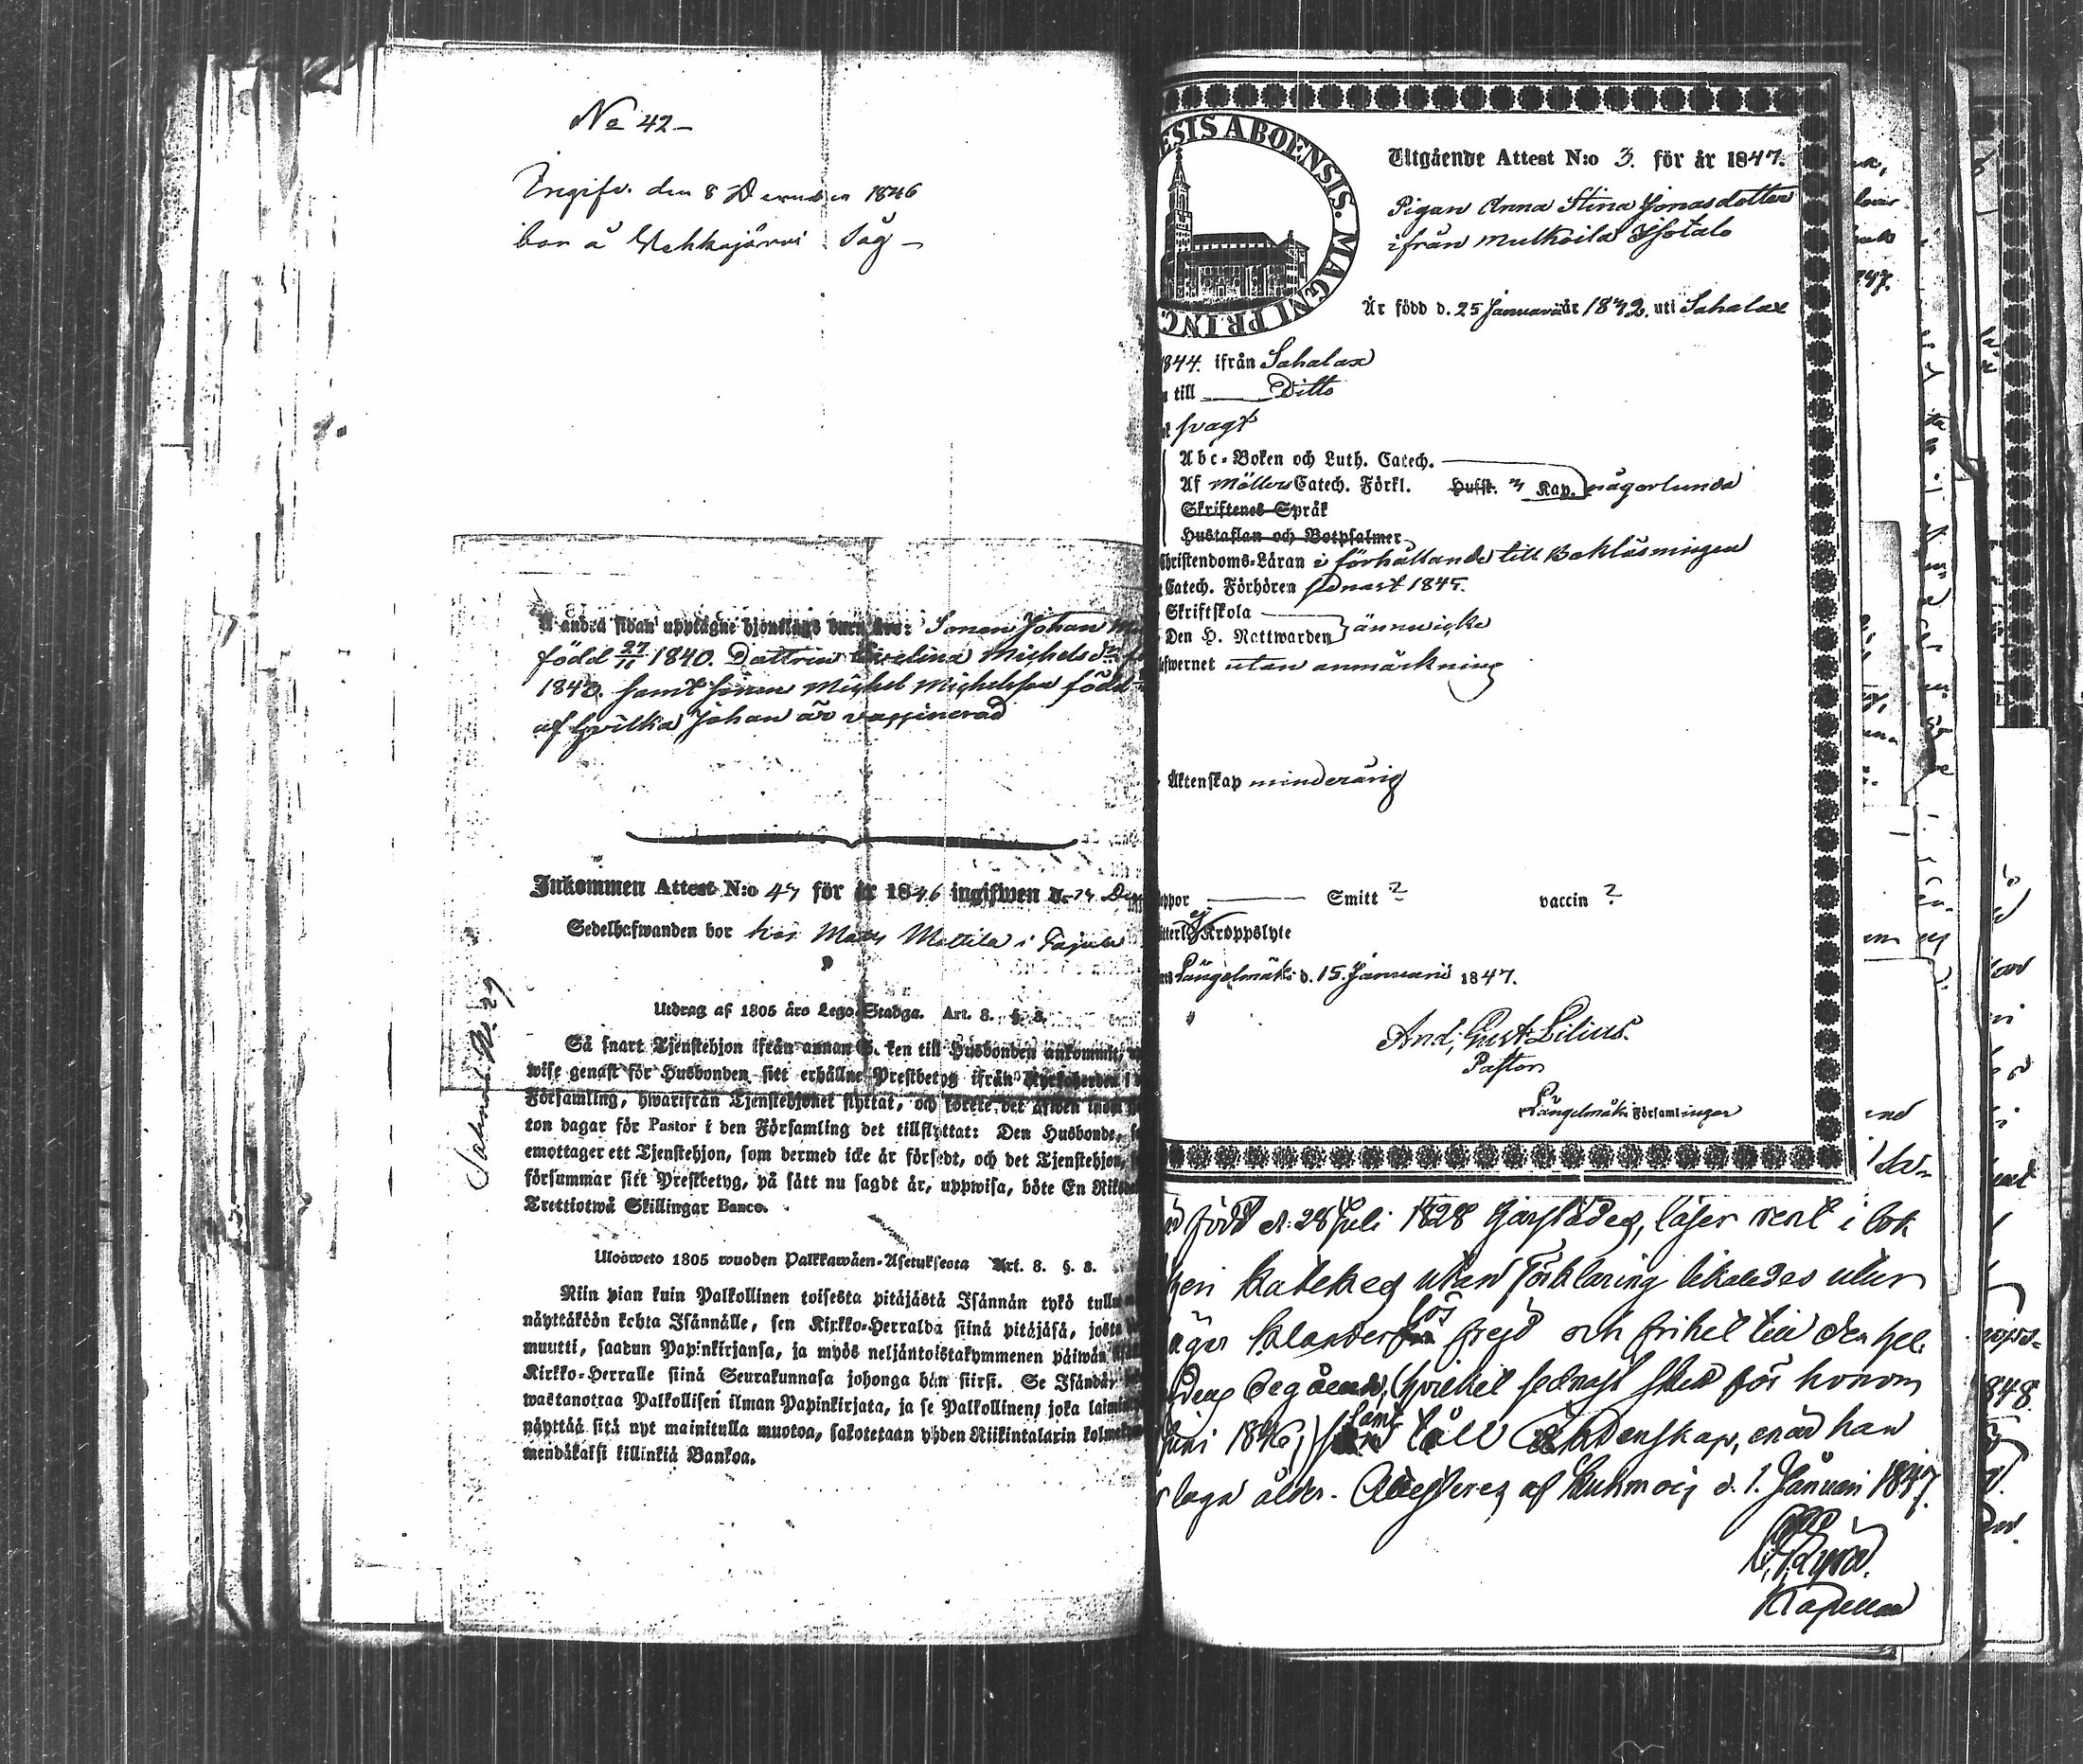 No 42 –
Ingifv. den 8 December 1846
bor å Vehkajärvi Såg –
Å andra sidan upptagne hjonelags barn äro: Sonen Johan
född 27/11 1840. Dottren Evelina Michelsdr
1843. samt sonen Michel Michelsson född
af hvilka Johan är vaccinerad
Inkommen Attest N:o 47 för år 1846 ingifwen d.
Sedelhafwanden bor hos Matts Mattila i
Saknas N. 29
Utdrag af 1805 års Lego-Stadga. Art. 8. §. 8.
Så snart Tjenstehjon ifrån annan S. ken till Husbonden ankommit,
wise genast för Husbonden sitt erhållne Prestbetyg ifrån Kyrkoherden i
Församling, hwarifrån Tjenstehjonet flyttat, och förete det äfwen inom
ton dagar för Pastor i den Församling det tillflyttat: Den Husbonde,
emottager ett Tjenstehjon, som dermed icke är försedt, och det Tjenstehjon,
försummar sitt Prestbetyg, på sätt nu sagdt är, uppwisa, böte En Riks
Trettiotwå Skillingar Banco.
Ulosweto 1805 wuoden Palkkawäen-Asetuksesta Art. 8. §. 8.
Niin pian kuin Palkollinen toisesta pitäjästä Isännän tykö tullut
näyttäköön kohta Isännälle, sen Kirkko-Herralda siinä pitäjäsä, josta
muutti, saadun Papinkirjansa, ja myös neljäntoistakymmenen päiwän
Kirkko-Herralle siinä Seurakunnasa johonga hän siirsi. Se Isändä,
wastanottaa Palkollisen ilman Papinkirjata, ja se Palkollinen, joka laimin
näyttää sitä nyt mainitulla muotoa, sakotetaan yhden Riikintalarin kolme
mendäkaksi killinkiä Bankoa.
ESIS ABOENSIS. MAGNI PRINC
Utgående Attest N:o 3. för år 1847.
Pigan Anna Stina Jonasdotter
ifrån Mulkoila Isotalo
Är född d. 25 Januarii år 1832. uti Sahalax
1844. ifrån Sahalax
till Ditto
svagt
Abc-Boken och Luth. Catech.
Af Möllers Catech. Förkl. Hufst. 3 Kap. någorlunda
Skriftenes Språk
Hustaflan och Botpsalmer
Christendoms-Läran i förhållande till Bokläsningen
Catech. Förhören sednast 1845.
Skriftskola
Den H. Nattwarden ännu icke
fwernet utan anmärkning
Äktenskap minderårig
oppor Smitt ? vaccin ?
ej
itterl. Kroppslyte
Längelmäki d. 15. Januarii 1847.
And. Gust. Lilius.
Pastor
Längelmäki Församlingar
född d. 28 Juli 1828
läser rent i bok
Kateches utan förklaring likaledes utur
äger klanderfös frejd och frihet till den hel.
begående, (hvilket sednast skedt för honom
Juni 1846,) samt till Äktenskap, enär han
laga ålder. Attesteras af Kuhmois d. 1. Januari 1847.
Kapellan